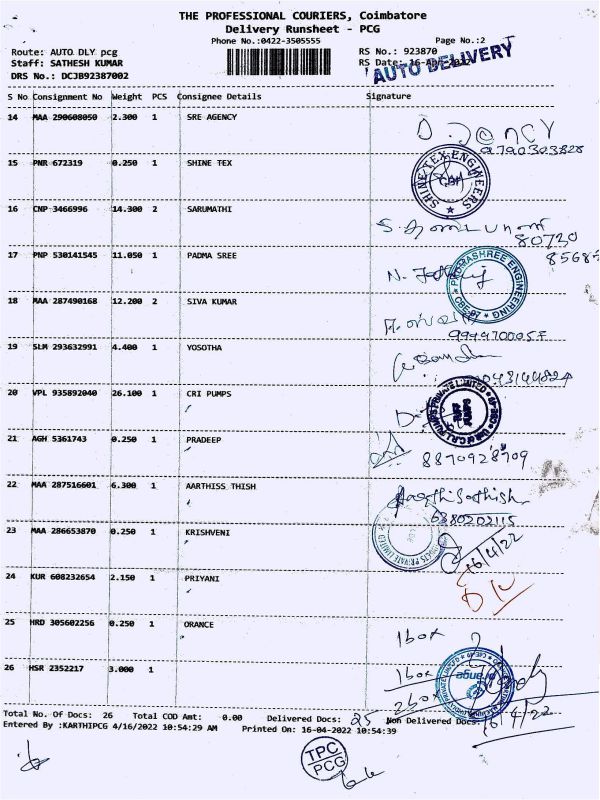 THE PROFESSIONAL COURIERS, Coimbatore
Delivery Runsheet - PCG
Phone No.:0422-3505555
Page No.:2
Route: AUTO DLY pcg
RS No.: 923870
Staff: SATHESH KUMAR
RS Date: 16-Apr-2022
AUTO DELIVERY
DRS No.: DCJB92387002
S No Consignment No Weight PCS Consignee Details Signature
14 MAA 290608050 2.300 1 SRE AGENCY
9790303828
15 PNR 672319 0.250 1 SHINE TEX
SHINE TEX ENGINEERS
16 CNP 3466996 14.300 2 SARUMATHI
80730
8568
17 PNP 530141545 11.050 1 PADMA SREE
PADMASHREE ENGINEERING
18 MAA 287490168 12.200 2 SIVA KUMAR
19 SLM 293632991 4.400 1 YOSOTHA
20 VPL 935892040 26.100 1 CRI PUMPS
21 AGH 5361743 0.250 1 PRADEEP
8870928709
22 MAA 287516601 6.300 1 AARTHISS THISH
Aarthi Sathish
6380202115
23 MAA 286653870 0.250 1 KRISHVENI
16/4/22
24 KUR 608232654 2.150 1 PRIYANI
25 HRD 305602256 0.250 1 ORANCE
1 box
26 HSR 2352217 3.000 1
1 box
2 box
16/4/22
Total No. Of Docs: 26 Total COD Amt: 0.00 Delivered Docs: 25 Non Delivered Docs:
Entered By :KARTHIPCG 4/16/2022 10:54:29 AM Printed On: 16-04-2022 10:54:39
TPC
PCG